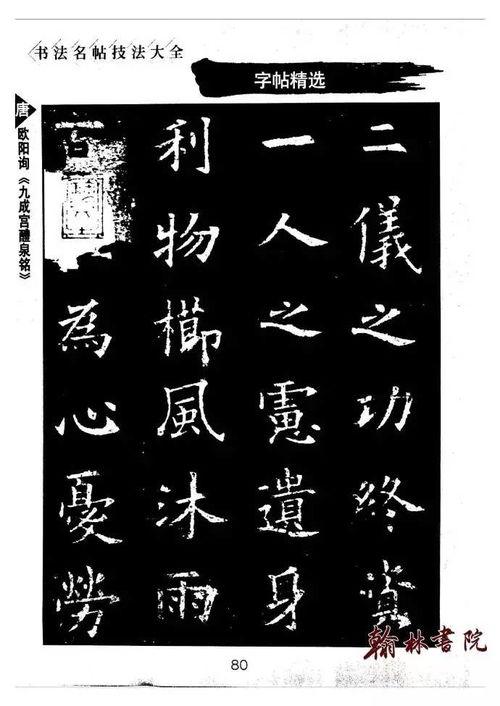 书法名帖技法大全
字帖精选
唐 欧阳询《九成宫醴泉铭》
二儀之功終資
一人之慮遺身
利物櫛風沐雨
百
為心憂勞
80
翰林書院